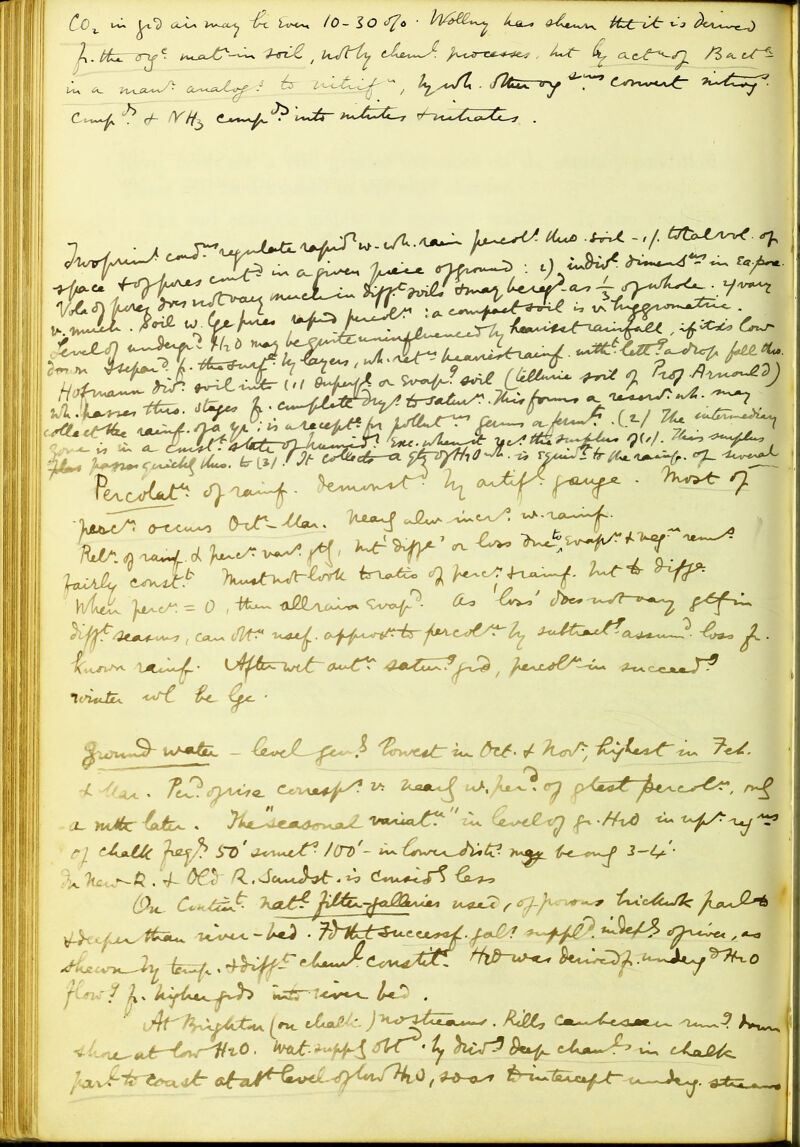 CO2 in grd air may be even 10-30 o/o. Wollny has shewn tht it is derived
fr. the orgc matr in soil, not by cheml processes, but by actn of Bacta
in a manr analogs to nitrifn, by wh. other orgsms convert nitrogs
compds & NH3 compds into nitrites & nitrates.
Two princl condns regulate rapidy w. wh. rain percols thro. soil - 1). total vol. of
space & of pores contd in a given piece of ground: 2) individl dimensns in ea. pore.
Vol. of pores does not vary much in difft soils & may be regd as 1/3 of whole. 2) vary
v. much. Soil w. lge pores rapid percoln: a compact soil is v. hygrometric.
Level of undergd H2O may be quite uninfluenced by heaviest rainfall, if it is low
down & sepad fr. the surf. by layers, wh. retn heaviest rainf. witht lettg a drop fall thro.
Hofmann divd soil into (1) superfl or evapg soil (telluric soil of Prof Arnould)
wh. passes thro. stages fr. complete drys to saturn. This forms a reservr wh. may
collect the rainf. of a yr: is a recepte for pollutns germs or fermts. (2) The intermediary
zone is in a constt state of humidy exc. when it recs the surplus of (1). This surplus
passes quickly thro. to (3). It collects a qty of H2O wh. is equivt to the rainf. of several
Percolatn of rainf. demonstd by artifl gauge. Most of
percn occurs Oct-Mar. Nearly alw incrs w. rainf.
Reln of rainf. & percn vars gtly, but 'diffce' or loss due to evapn & vegn remns
fairly constt. Must not look to ratio of percn & rainf. but to diffce.
When percn = 0, then all rain evapd. As 'loss' does not vary gtly in
difft seasons, can obtn usef. approxn to percoln by subtractg assumd loss fr.
known rainf. After wet autn saturg grd, percoln in succeedg
winter wl be lge.
Ground water - level genly lowest in Oct. & Nov., highest in Feb.
& Mar. Perd of rise corresps v. nearly w. perd of gtest percoln, only
a mth later. The "seasonal variatn" in level of gr. H2O in upr regns
of chalk freqly 50' somets 100' - in lower dists may be only 3-4'.
In New R. & Old R. Sandst. is considly less
On Contint. natl filter-galleries used, of porous brickwk parl to
& deeper than river-bed. Fd tht successf. gals suppld indeply of river, as
shewn by temp. & difft cheml constitn. H2O was derived fr. undergd H2O
flowg fr. higher grds into river bed.
At Brighton (on chalk) no streams. Rills can be seen rung down
shore at low H2O. Wat. supply obtd by drivg deep chanls in chalk
parl to coast at abt level of low H2O, so as to intercept underg. streams